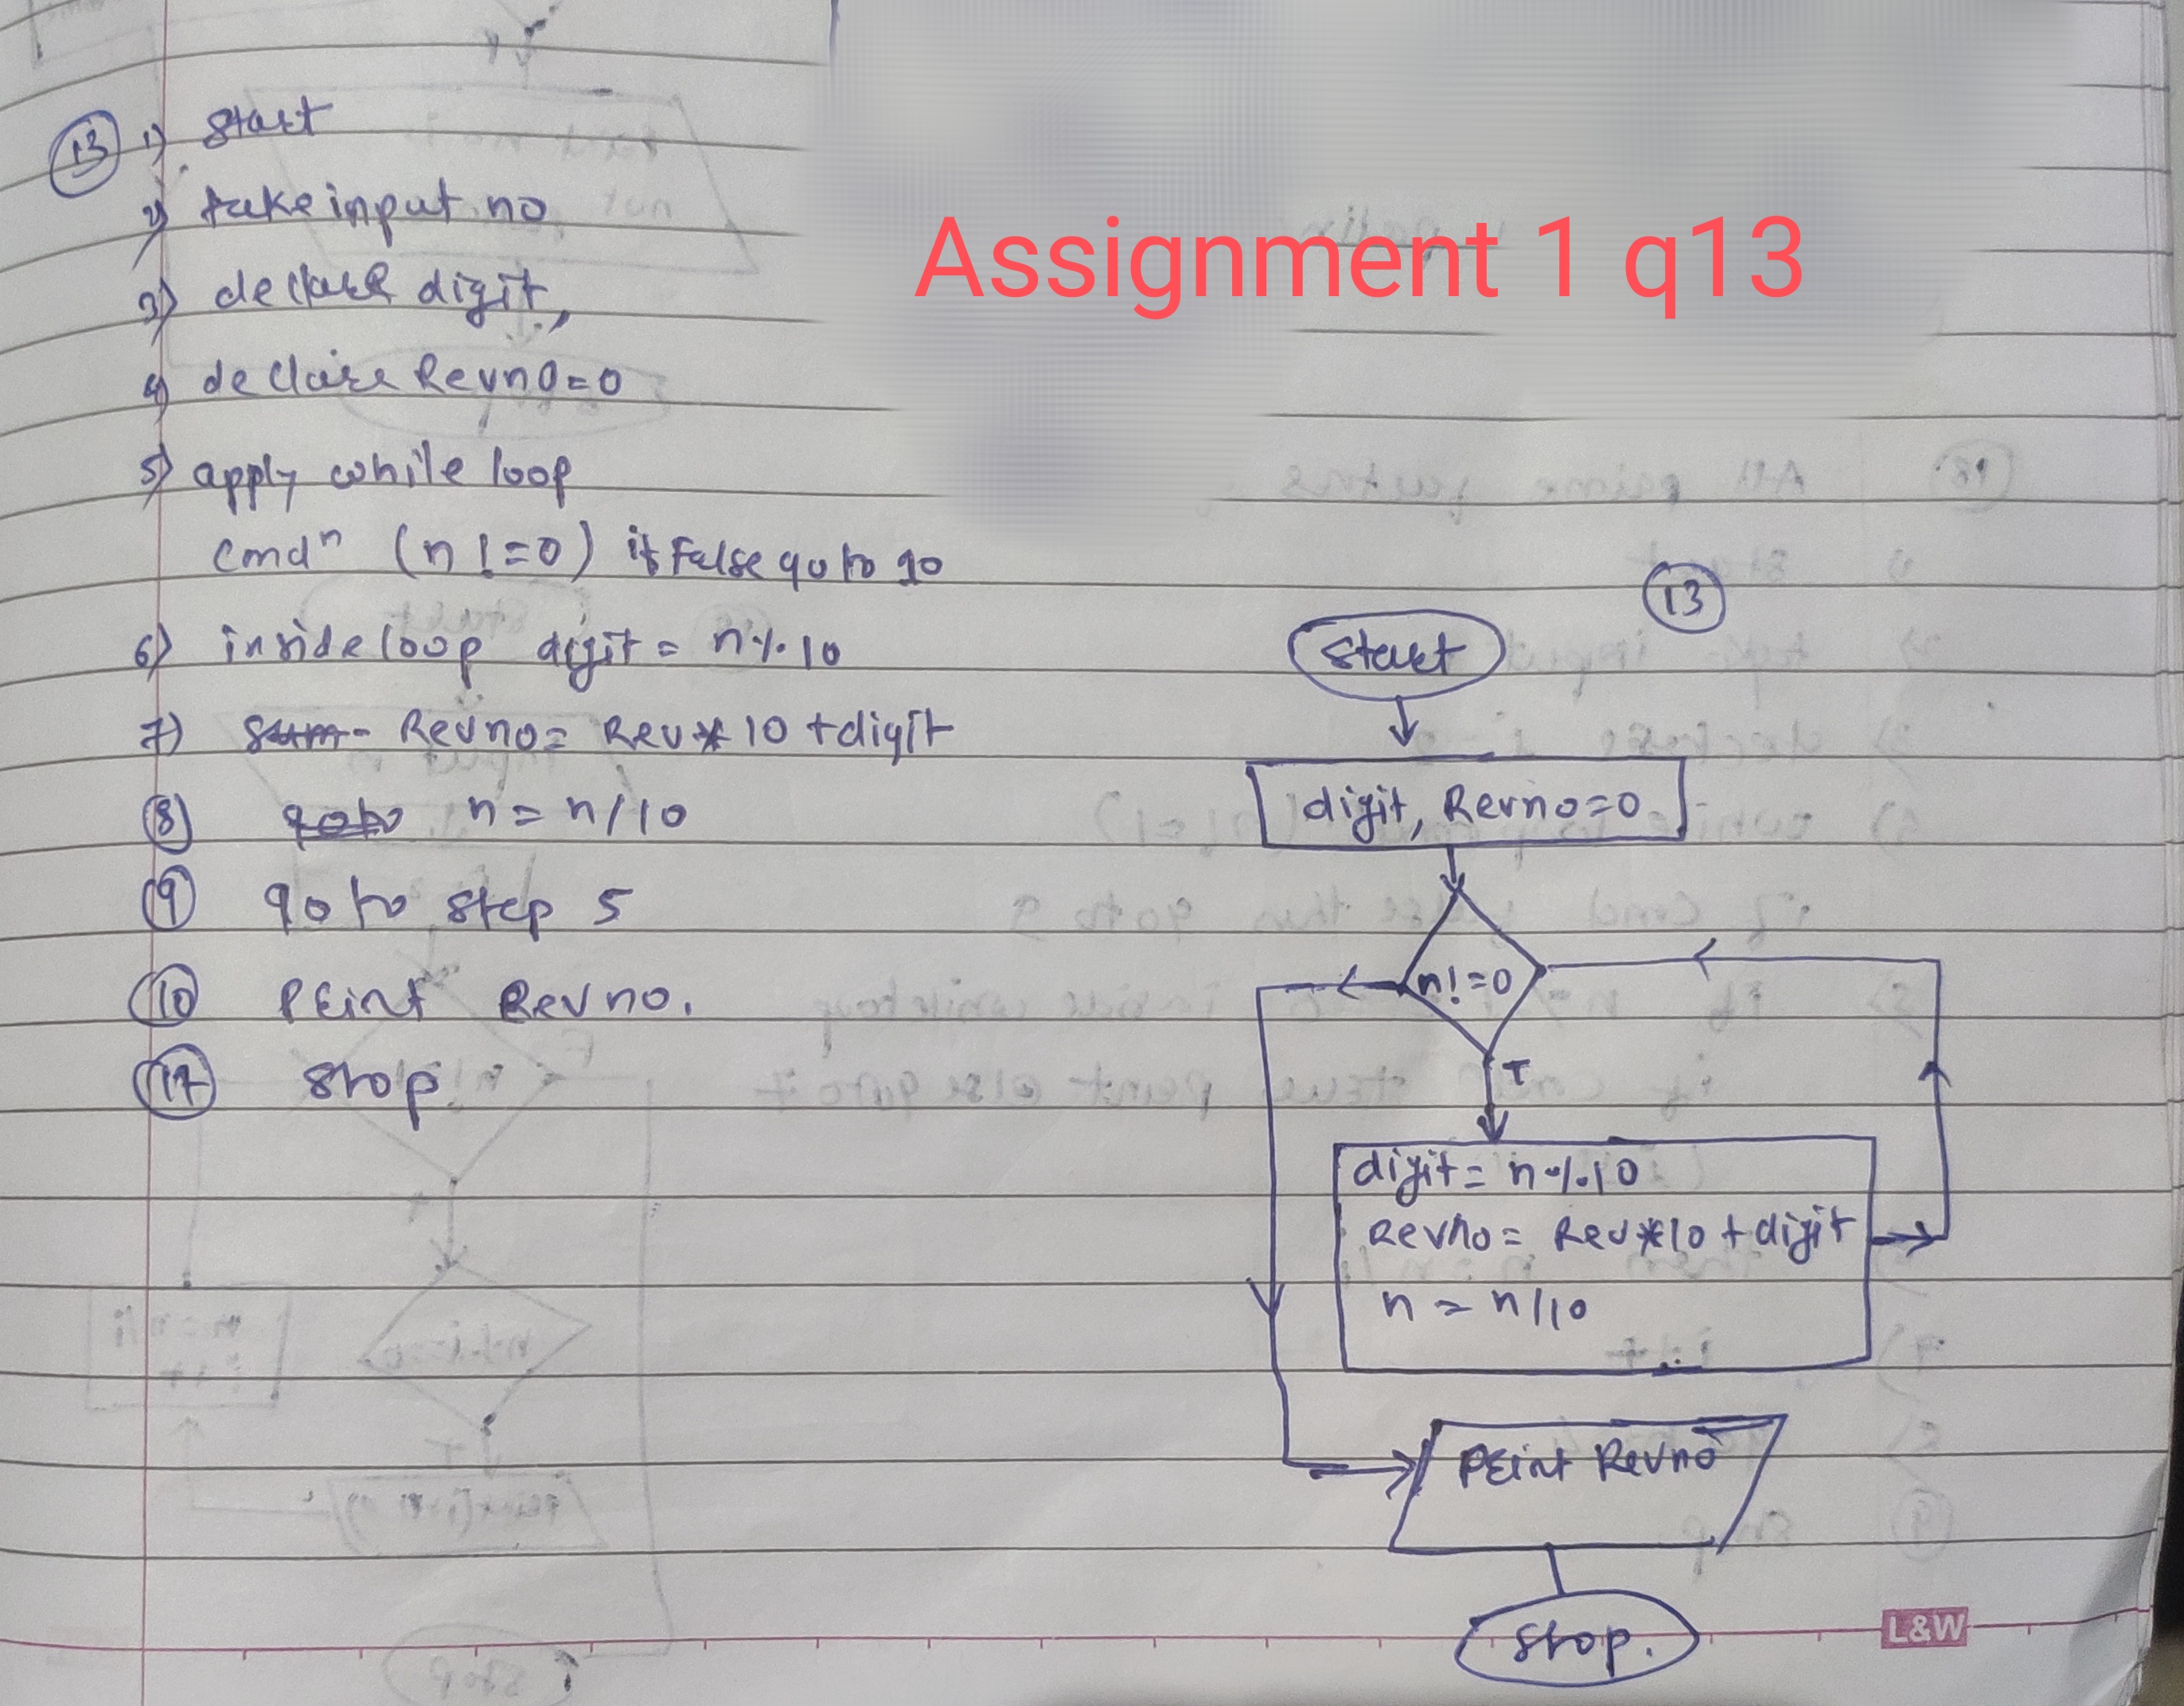 Assignment 1 q13
13 1) Start
2) take input no
3) declare digit,
4) declaire Revno=0
5) apply while loop
Condⁿ (n!=0) if False go to 10
6) inside loop digit = n%10
7) Revno= Rev*10+digit
8 n = n/10
9 go to step 5
10 Print Revno.
Stop
13
Start
digit, Revno=0
n!=0
T
digit= n%10
Revno= Rev*10+digit
n = n/10
Print Revno
Stop.
L&W